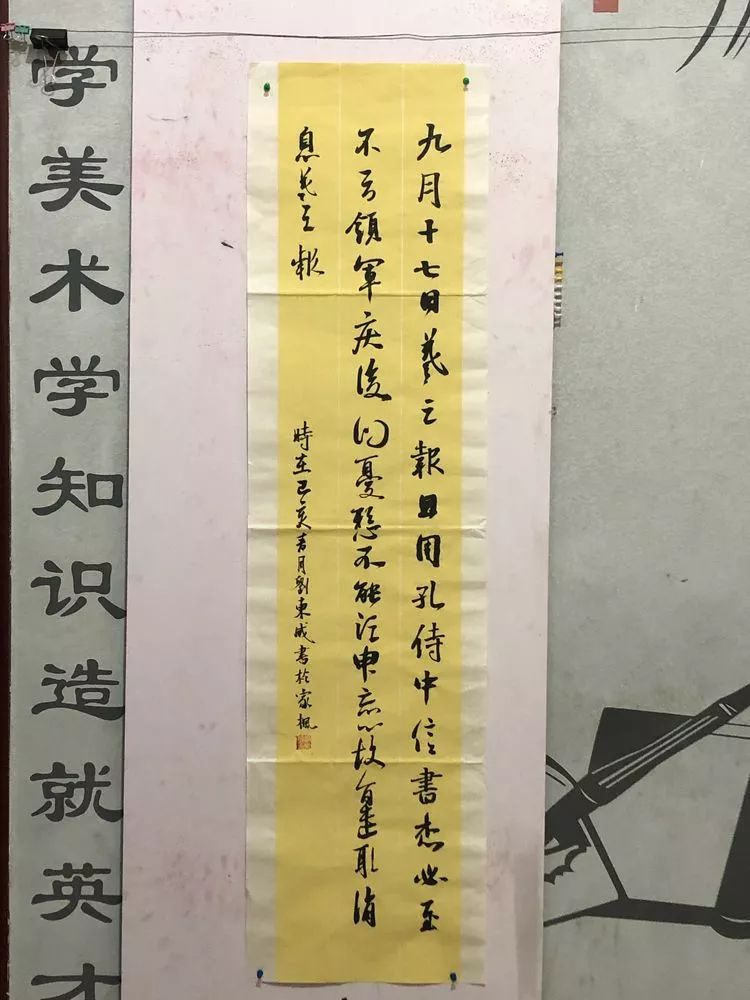 九月十七日羲之報且因孔侍中信書想必至
不知領軍疾後問憂懸不能須臾忘心故旨遣取消
息羲之報
時在己亥月劉東成書於家楓
学美术学知识造就英才